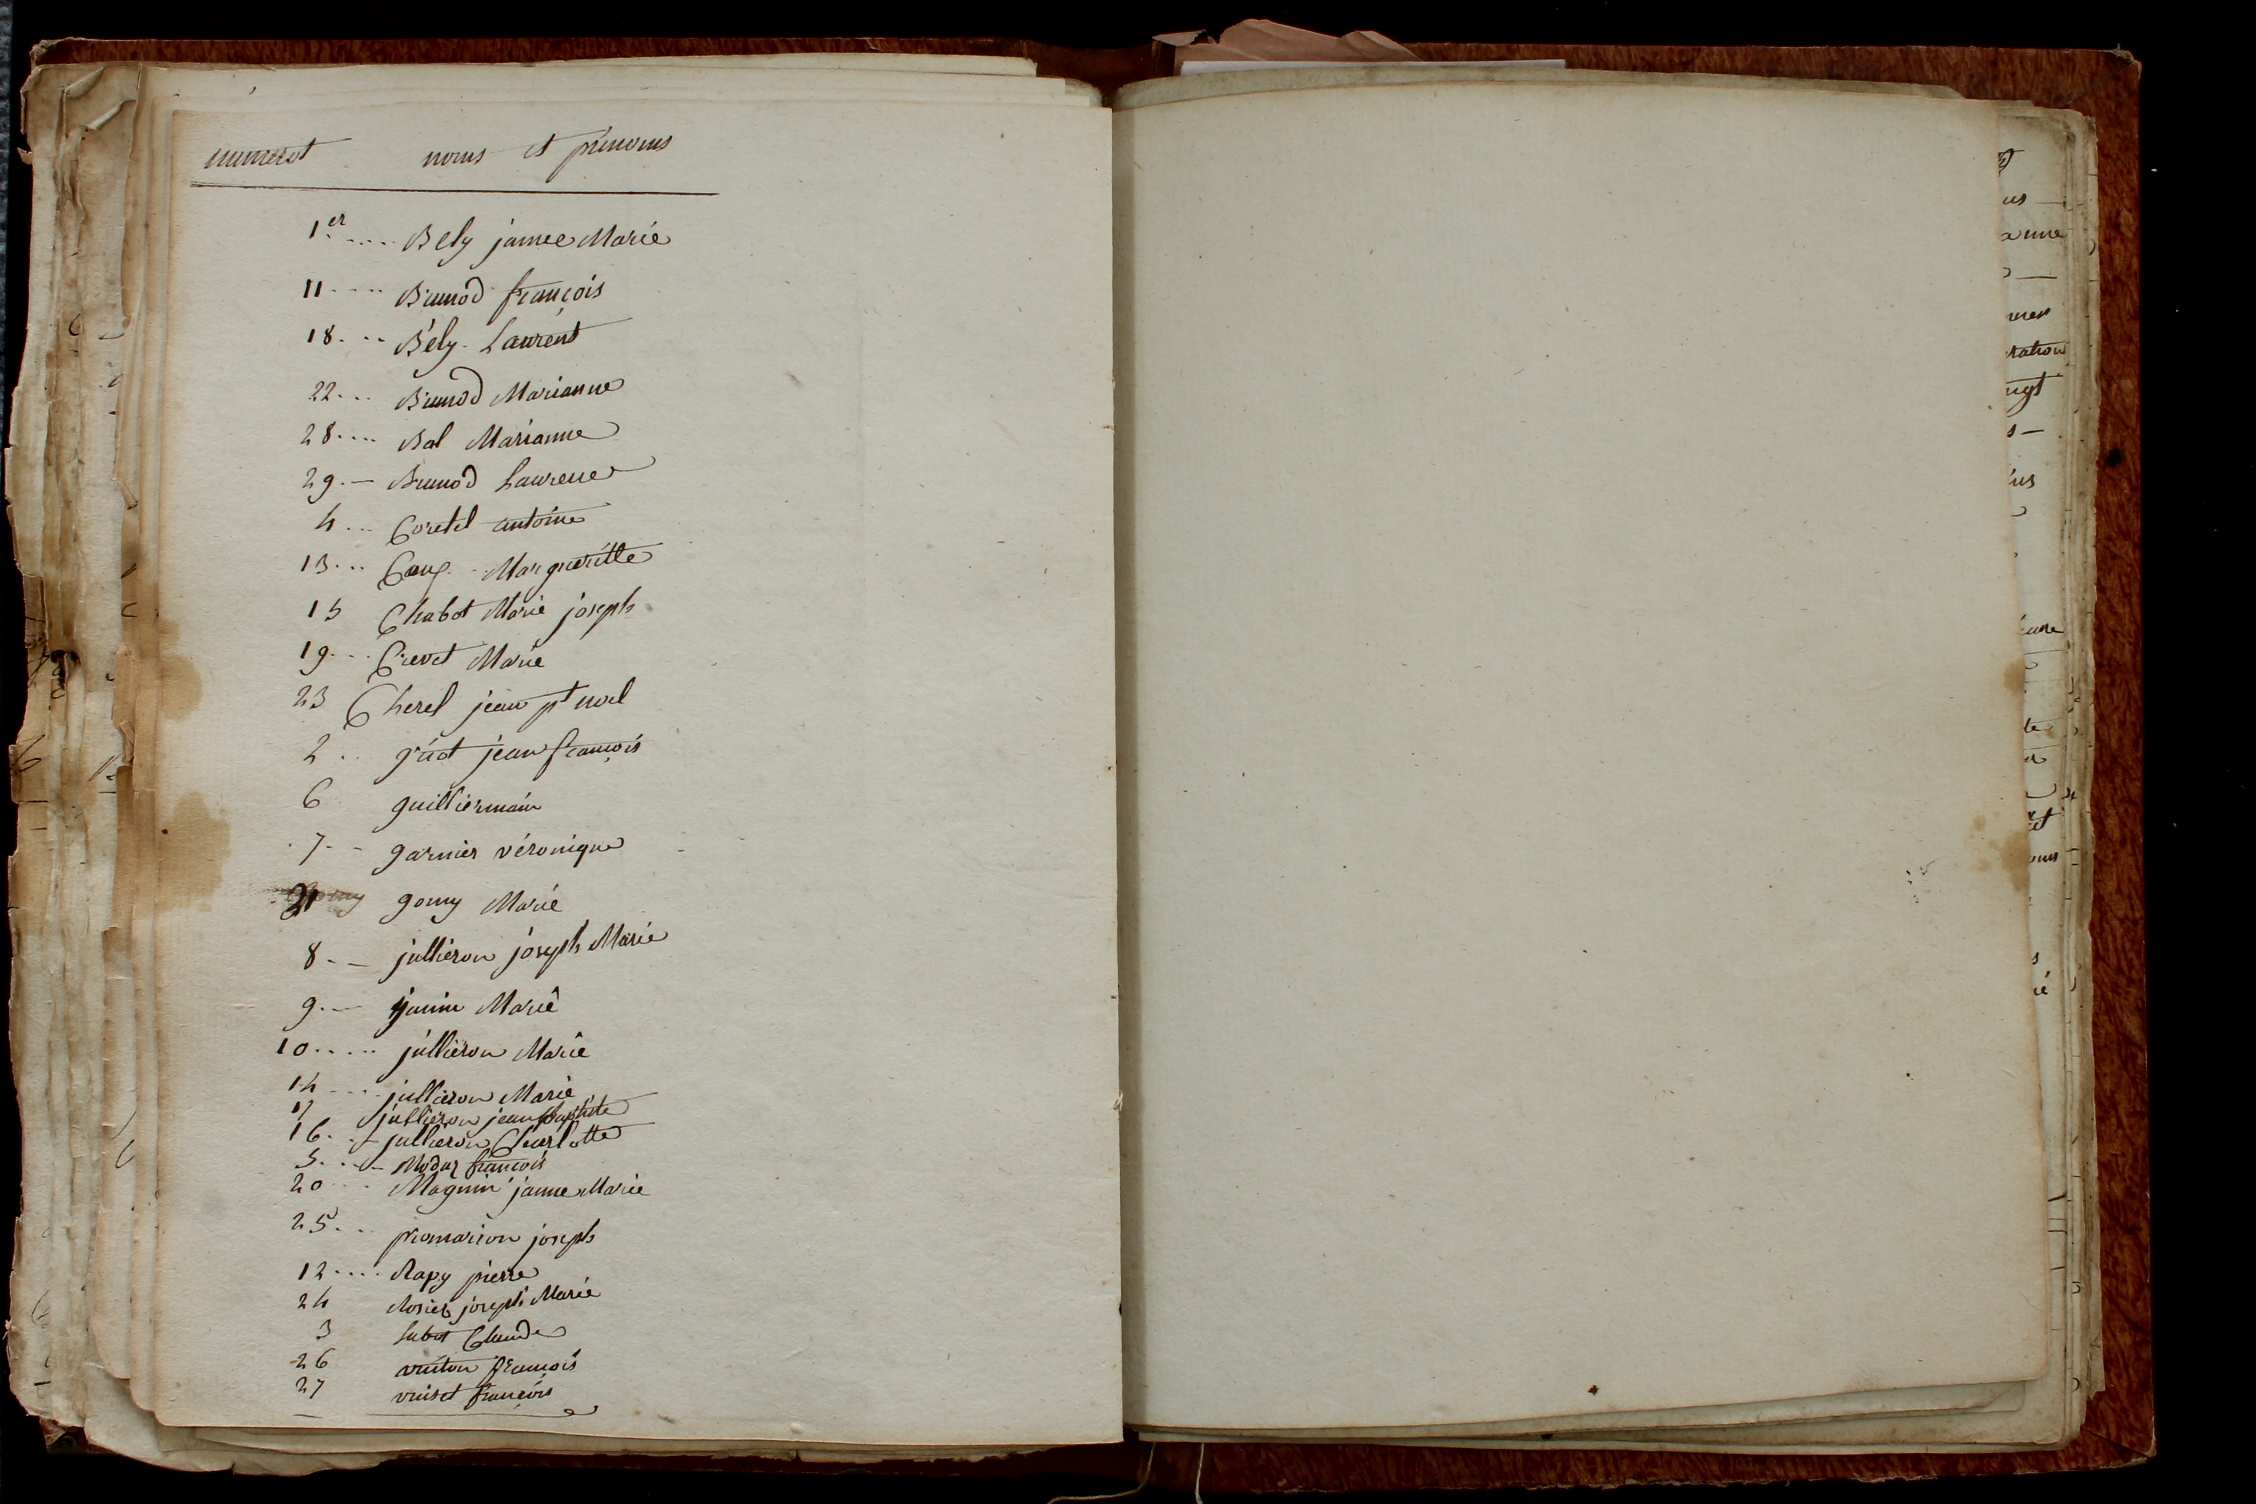 numerot noms et prenoms
1er ..... Bely janne Marie
11 .... Brunod françois
18 ... Bély Laurent
22 ... Brunod Marianne
28 .... Bal Marianne
29 . — Brunod Laurence
4 ... Coretel antoine
13 ... Margueritte
15 Chabot Marie joseph
19 ... Crevet Marie
23 Cherel jean pt noel
2 .. griot jean françois
6 guilliermain
7 . - garnier véronique
21 gomy Marie
8 . — jullieron joseph Marie
9 . — janin Marie
10 ..... jullieron Marie
14 .... jullieron Marie
17 jullieron jean baptiste
16 . . — jullieron Charlotte
5 ... - Modaz françois
20 ... Magnin janne Marie
25 ... promarion joseph
12 .... Rapy pierre
24 Rosier joseph Marie
3 Claude
26 françois
27 françois